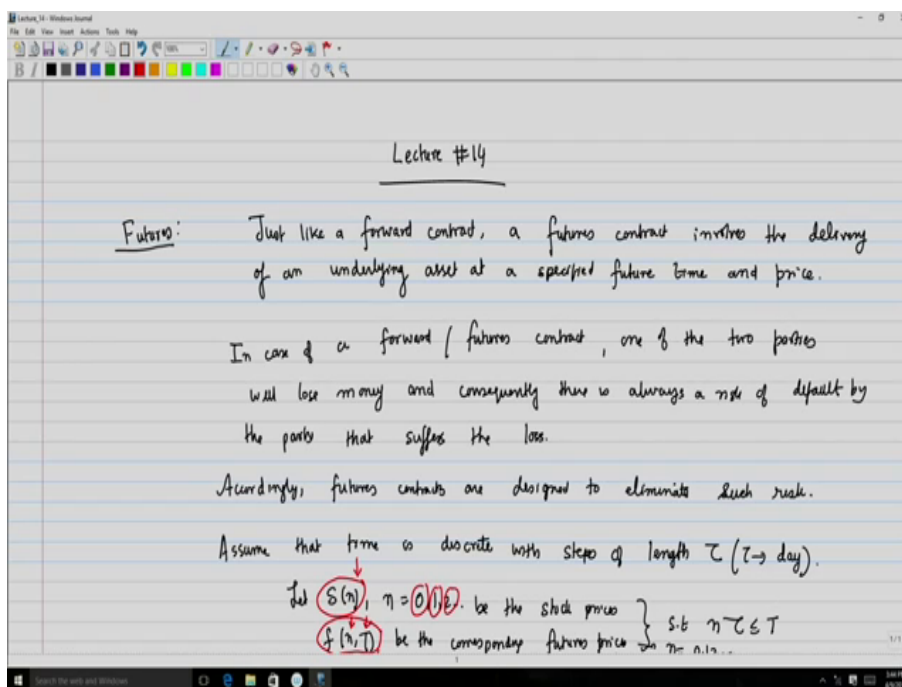 Lecture_14 - Windows Journal
File Edit View Insert Actions Tools Help
B I
Lecture #14
Futures: Just like a forward contract, a futures contract involves the delivery
of an underlying asset at a specified future time and price.
In case of a forward / futures contract, one of the two parties
will lose money and consequently there is always a risk of default by
the party that suffers the loss.
Accordingly, futures contracts are designed to eliminate such risk.
Assume that time is discrete with steps of length τ (τ→ day).
Let S(n), n = 0,1,2.. be the stock prices
f(n,T) be the corresponding futures price
s.t nτ ≤ T
1/1
1
Search the web and Windows